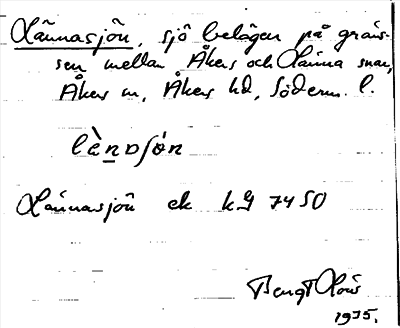 Lännasjön, sjö belägen på gräns-
sen mellan Åkers och Länna snar,
Åkers sn, Åkers hd, Söderm. l.
lä̀nɒʃön
Lännasjön ek kg 7450
Bengt
1935.